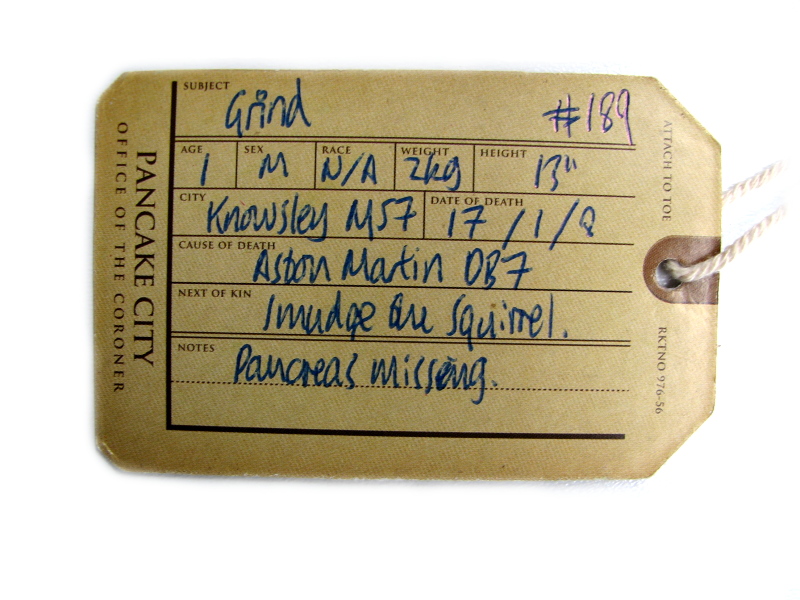 SUBJECT
Grind #189
AGE SEX RACE WEIGHT HEIGHT
1 M N/A 2kg 13"
CITY DATE OF DEATH
Knowsley M57 17/1/8
CAUSE OF DEATH
Aston Martin DB7
NEXT OF KIN
Smudge the Squirrel.
NOTES
Pancreas missing.
PANCAKE CITY
OFFICE OF THE CORONER
ATTACH TO TOE
RKTNO 976-56